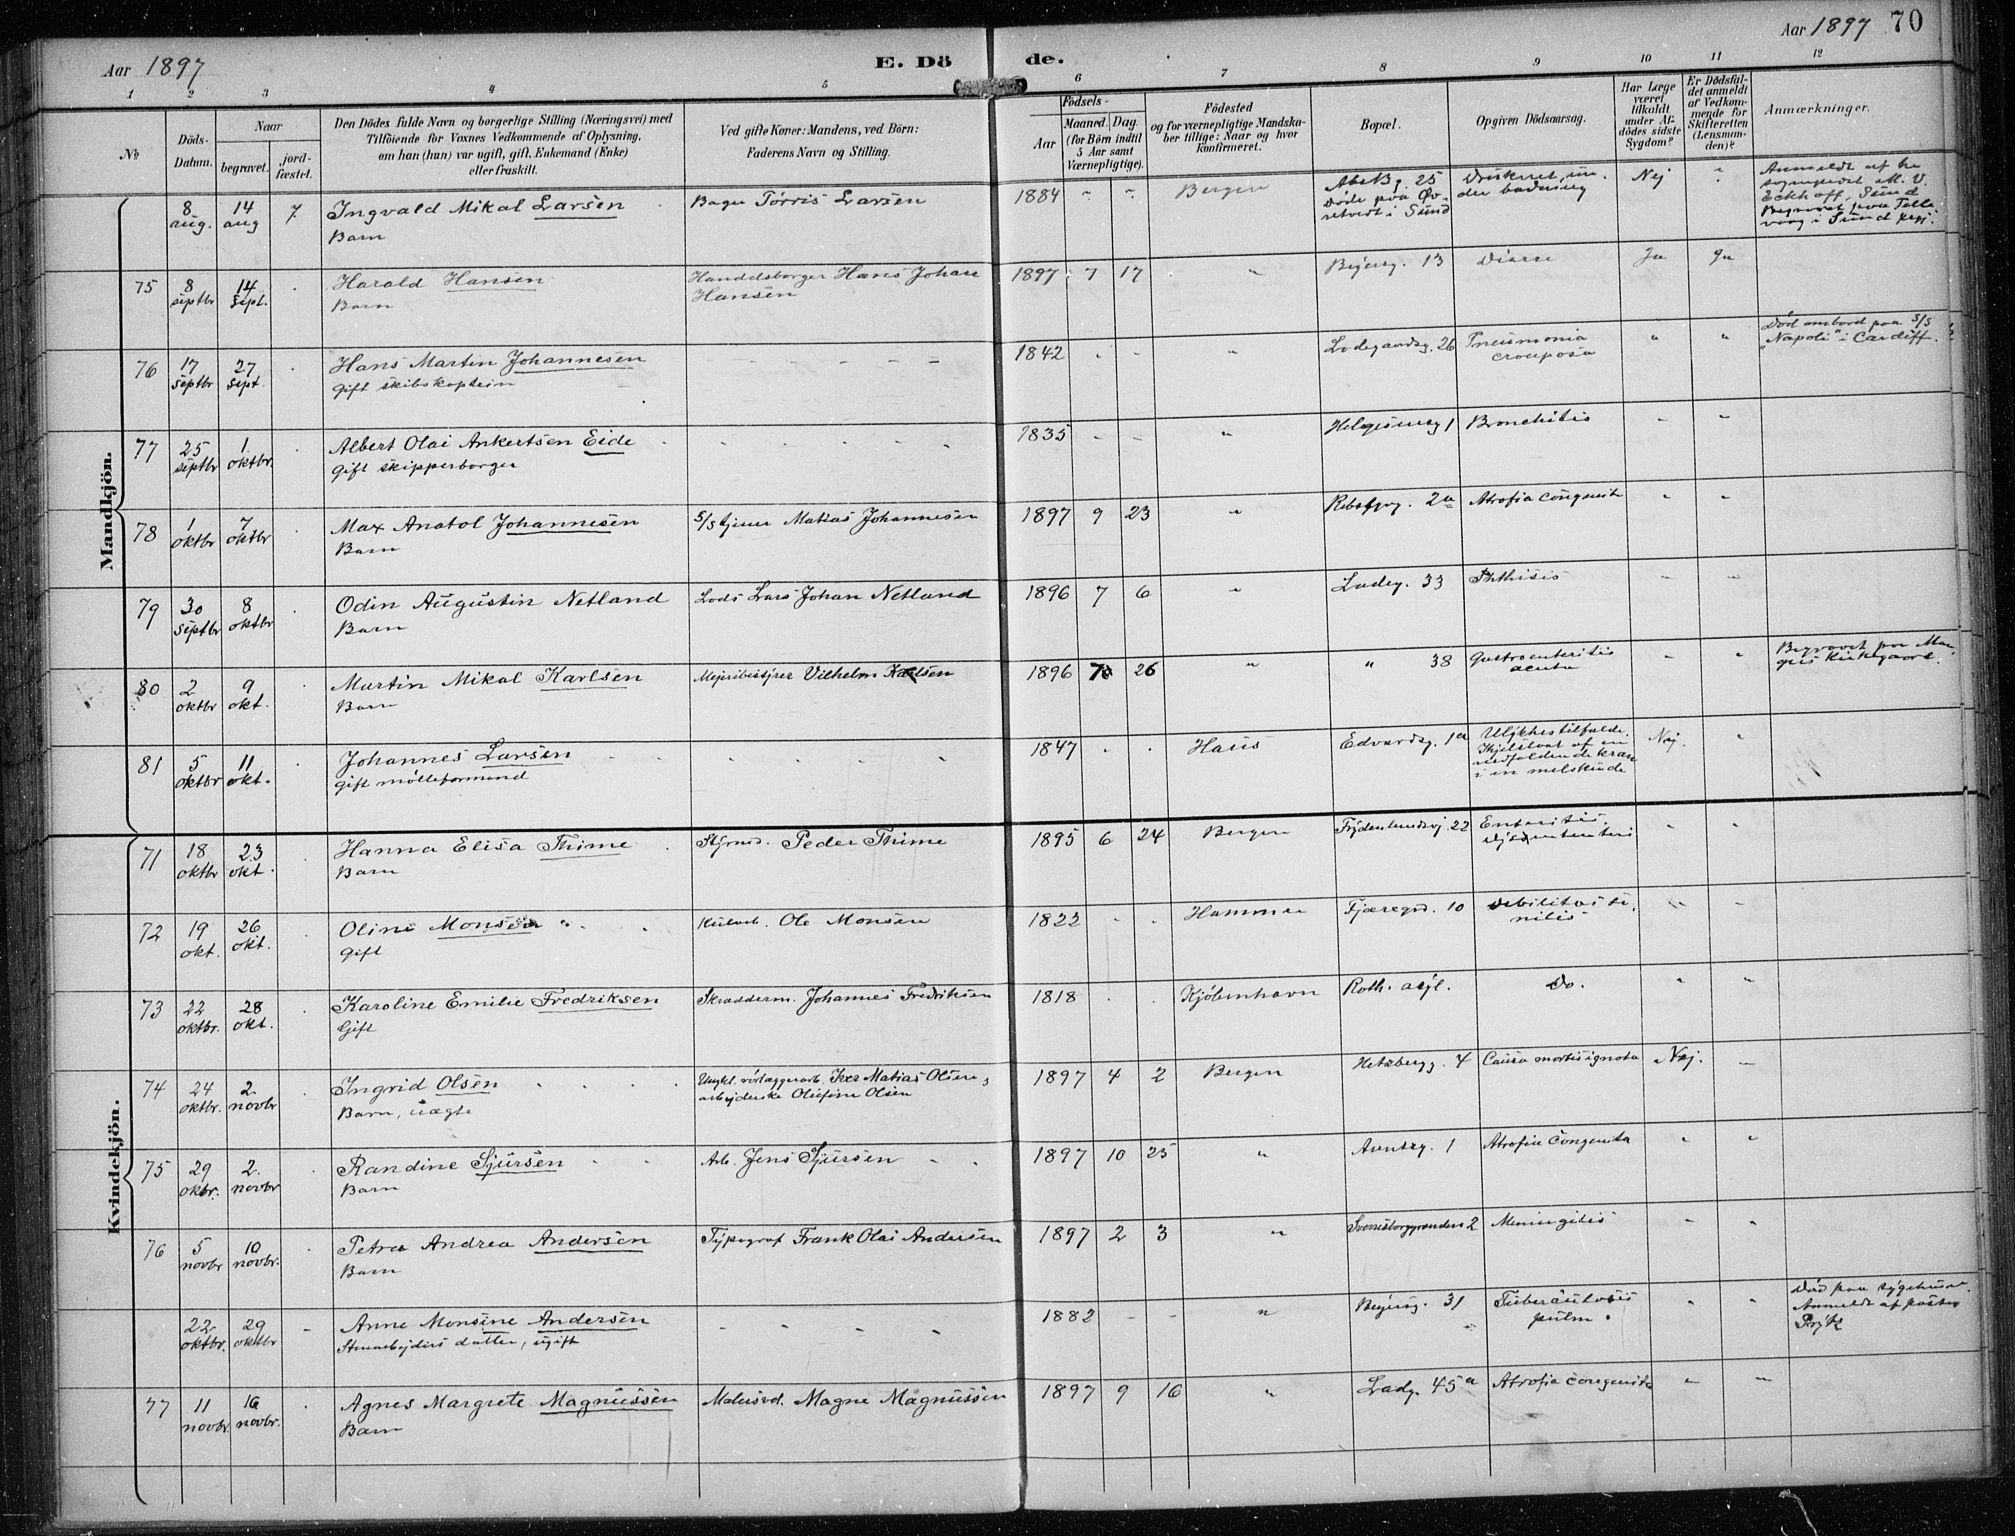 Aar 1897
E. Döde.
Aar 1897 70
1 2 3 4 5 6 7 8 9 10 11 12
№ Döds-Datum. Naar begravet. jord-fæstet.
Den Dödes fulde Navn og borgerlige Stilling (Næringsvei) med
Tilföiende for Voxnes Vedkommende af Oplysning,
om han (hun) var ugift, gift, Enkemand (Enke)
eller fraskilt.
Ved gifte Koner: Mandens, ved Börn:
Faderens Navn og Stilling.
Födsels-
Aar Maaned. Dag.
(for Börn indtil
5 Aar samt
Værnepligtige).
Födested
og for værnepligtige Mandska-
ber tillige: Naar og hvor
konfirmeret.
Bopæl.
Opgiven Dödsaarsag.
Har Læge
været
tilkaldt
under Af-
dödes sidste
Sygdom?
Er Dödsfal-
det anmeldt
af Vedkom-
mende for
Skifteretten
(Lensman-
den)?
Anmærkninger.
Mandkjön.
8 aug. 14 aug 7. Ingvald Mikal Larsen Bager Tørris Larsen 1884 " " Bergen 25 Druknet un- Nej "
Barn døde paa Øv- der badning
retvedt i Sund
Anmeldt af
sogneprest M. V.
Eckhoff, Sund
Begravet paa Telle-
vaag i Sund
75 8 septbr 14 sept. Harald Hansen Handelsborger Hans Johan 1897 7 17 " 13 Diarre Ja Ja
Barn Hansen
76 17 septbr 27 sept. Hans Martin Johannesen - - - - 1842 - - " Ladegaardsg. 26 Pneumonia " " Død ombord paa S/S
Gift skibskaptein crouposa "Napoli" i Cardiff.
77 25 septbr 1. oktbr. Albert Olai Ankertsen Eide 1835 - - " 1 Bronchitis - "
Gift skipperborger
78 1 oktbr 7 oktbr Max Anatol Johannesen S/S tjener Matias Johannesen 1897 9 23 " 2a Atrofia congenita " "
Barn
79 30 septbr 8 oktbr Odin Augustin Netland Lods Lars Johan Netland 1896 7 6 " Ladeg. 33 Phthisis " "
Barn
80 2 oktbr 9 okt. Martin Mikal Karlsen Mejeribestyrer Vilhelm Karlsen 1896 26 " " 38 Gastroenteritis " " Begravet paa Man-
Barn acuta gers kirkegaard.
81 5 oktbr 11 okt. Johannes Larsen 1847 . . Haus Edvardsg. 1a Ulykkestilfælde. Nej. "
Gift mølleformand Ihjelslaat af en
nedfaldende kran
i en melskude
Kvindekjön.
71 18 oktbr 23 okt. Hanna Elisa Thime Styrmd. Peder Thime 1895 6 24 Bergen Frydenlundsvj. 22 Enteritis. " "
Barn
72 19 okt. 26 okt. Oline Monsen Ole Monsen 1822 . . Hammer Fjæregrd. 10 Debilitas se- " "
Gift nilis
73 22 oktbr. 28 okt. Karoline Emilie Fredriksen Skrædderm. Johannes Fredriksen 1818 . . Kjöbenhavn Roth. asyl. Do. " "
Gift
74 24 oktbr. 2 novbr Ingrid Olsen Matias Olsen, 1897 4 2 Bergen 4 Causa mortis ignota Nej. -
Barn, uægte arbejderske Olufine Olsen
75 29 oktbr. 2. novbr Randine Sjursen Arb. Jens Sjursen 1897 10 25 " 1 Atrofia congenita " "
Barn
76 5 novbr 10 novbr. Petra Andrea Andersen Typograf Frank Olai Andersen 1897 2 3 " Sverresborggrænden 2 Meningitis " "
Barn
22 oktbr. 29 oktbr Anne Monsine Andersen - - - - 1882 - - " 31 Tuberculosis " " Død paa sygehuset
Stenarbejders datter, ugift pulm. Anmeldt af pastor
77 11 novbr. 16 novbr. Agnes Margrete Magnussen Malersvd. Magne Magnussen 1897 9 16 " Ladg. 45a Atrofia congenita " "
Barn